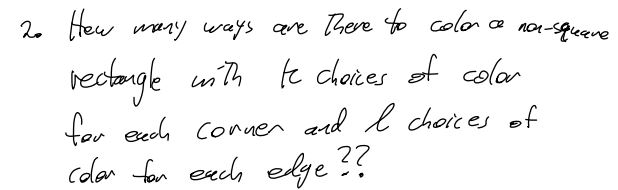 2. How many ways are there to color a non-square
rectangle with k choices of color
for each corner and l choices of
color for each edge??